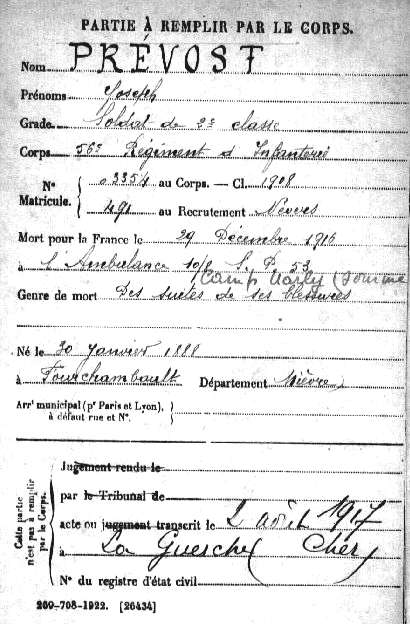 PARTIE À REMPLIR PAR LE CORPS.
Nom PRÉVOST
Prénoms Joseph
Grade Soldat de 2e classe
Corps 56e Régiment d'Infanterie
Nº Matricule. { 03354 au Corps. — Cl. 1908
491 au Recrutement Nevers
Mort pour la France le 29 Décembre 1916
à l'Ambulance 10/8 S. P. 53
Camp (Somme
Genre de mort Des suites de ses blessures
Né le 30 Janvier 1888
à Fourchambault Département Nièvre
Arrt municipal (pr Paris et Lyon), à défaut rue et Nº. {
Cette partie n'est pas à remplir par le Corps.
Jugement rendu le
par le Tribunal de
acte ou jugement transcrit le 2 août 1917
à La Guerche (Cher)
Nº du registre d'état civil
269-708-1922. [26434]